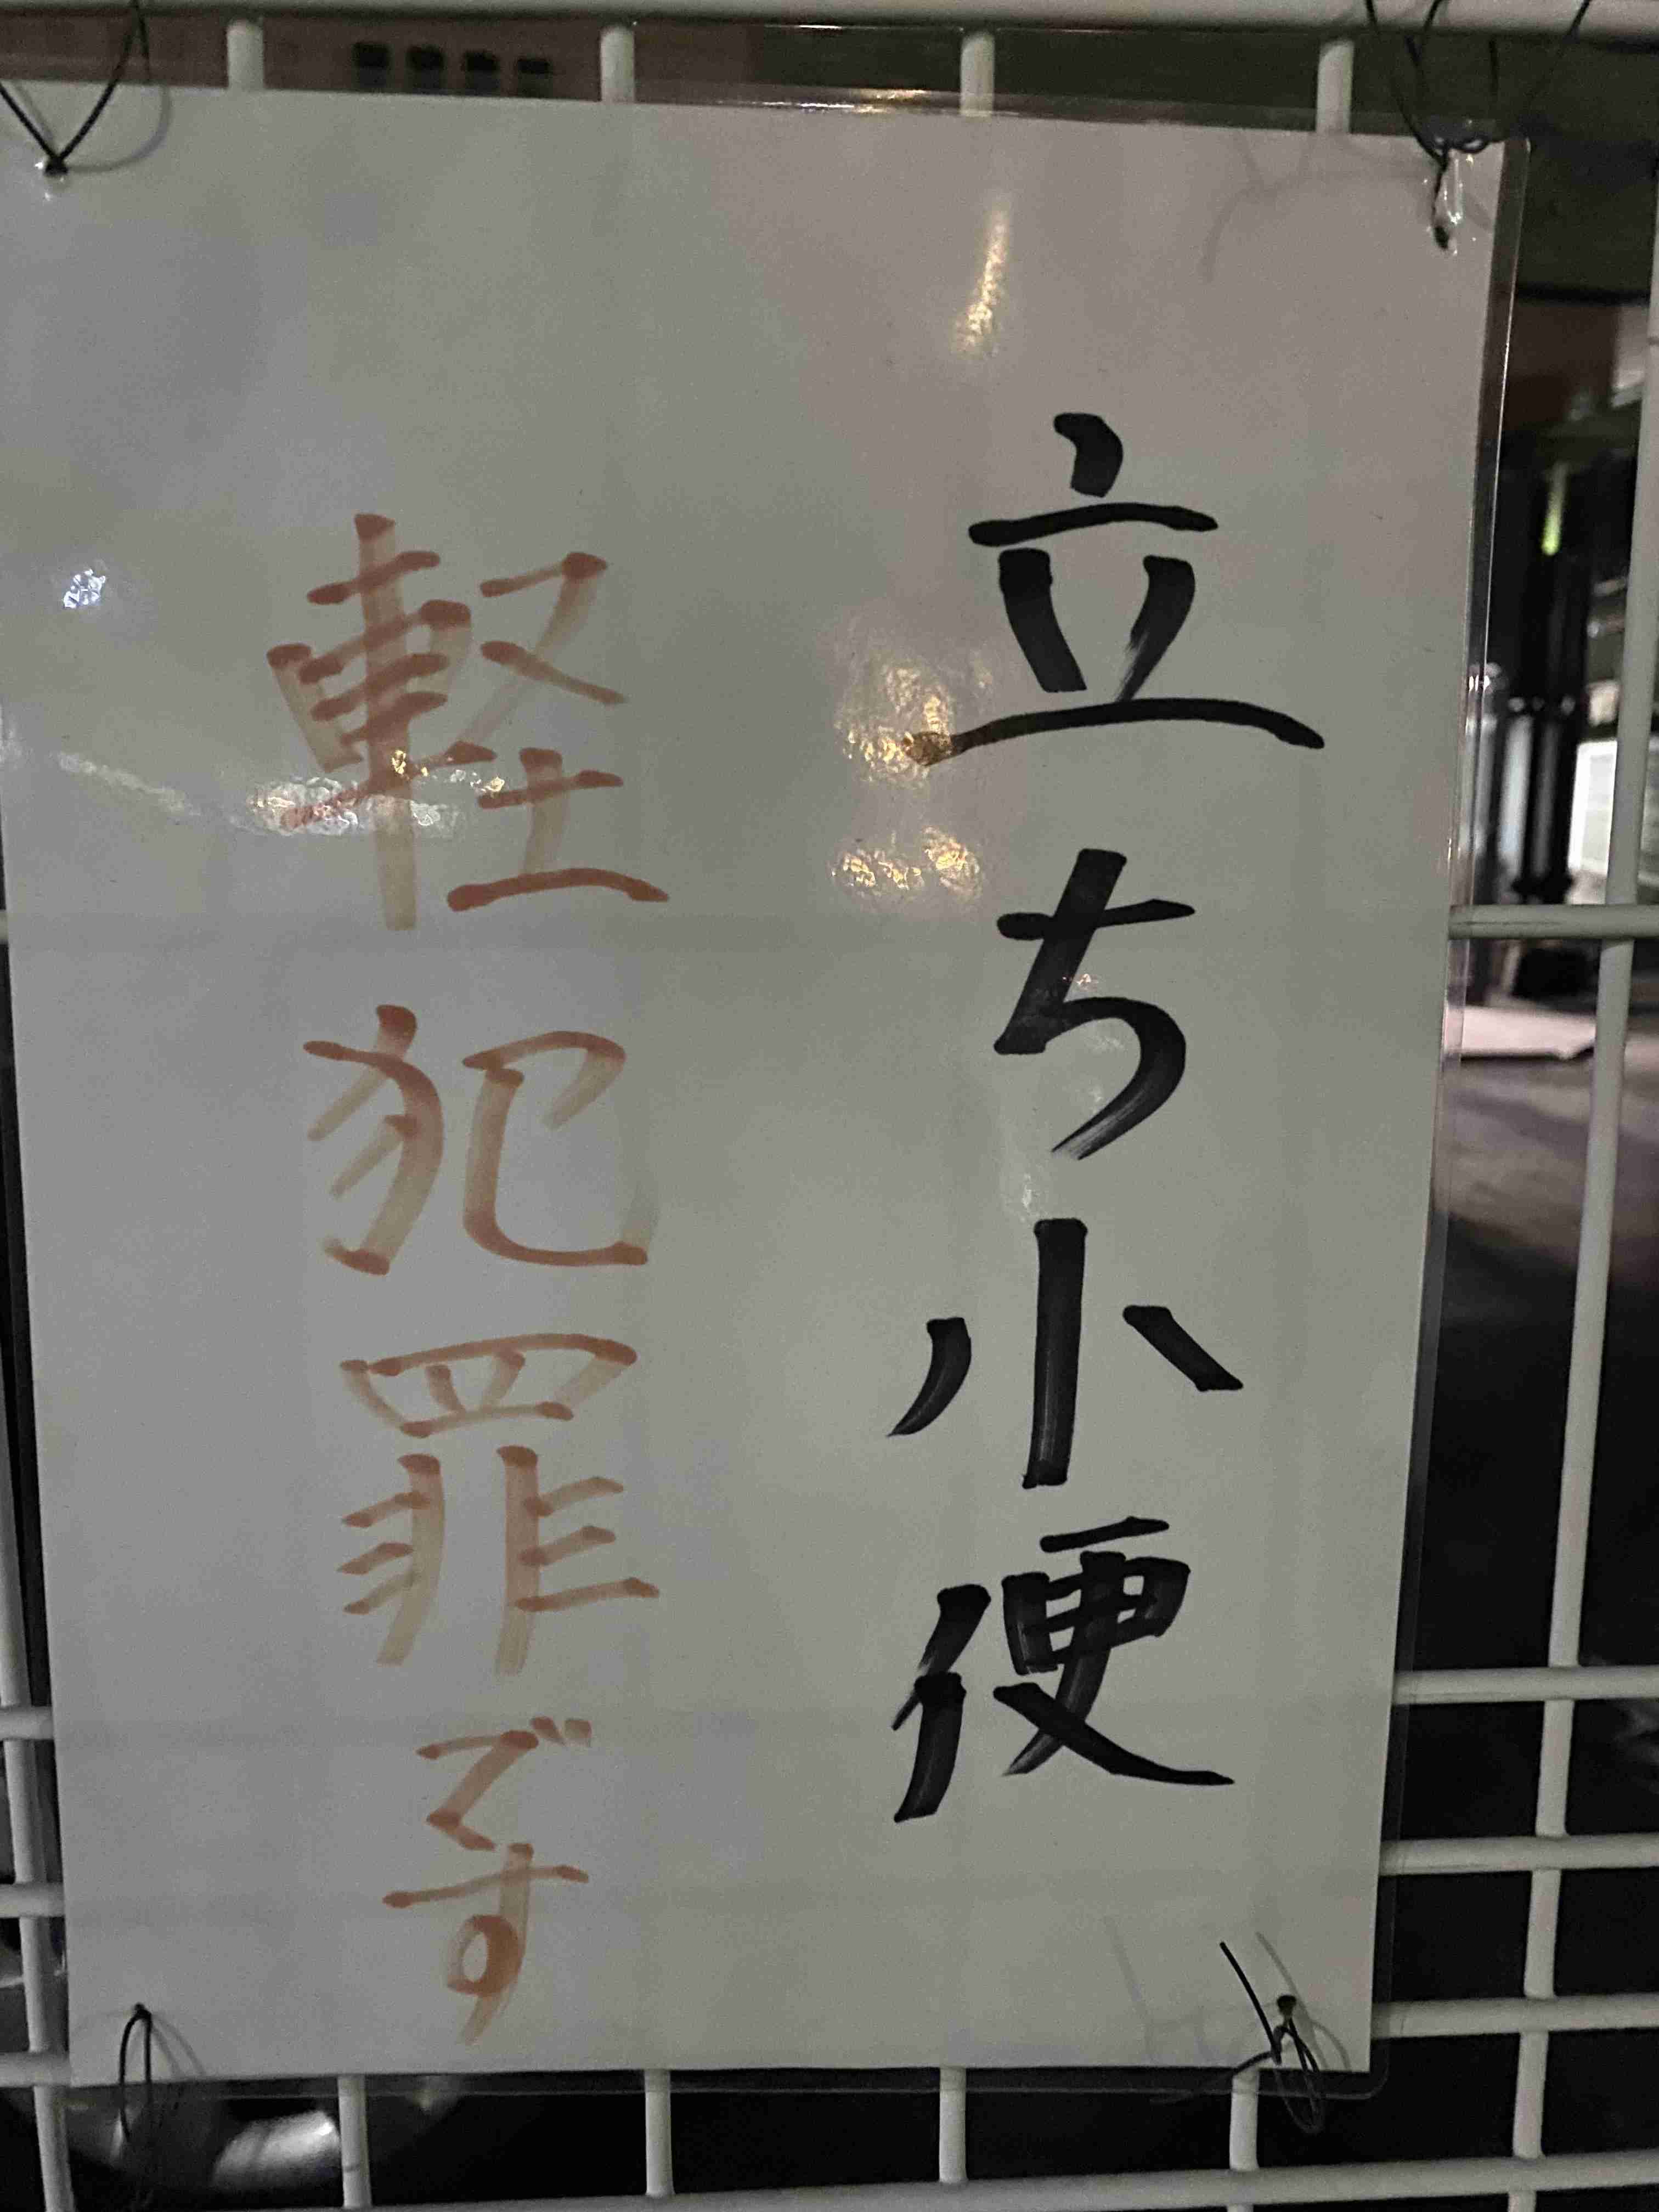 立ち小便
軽犯罪です